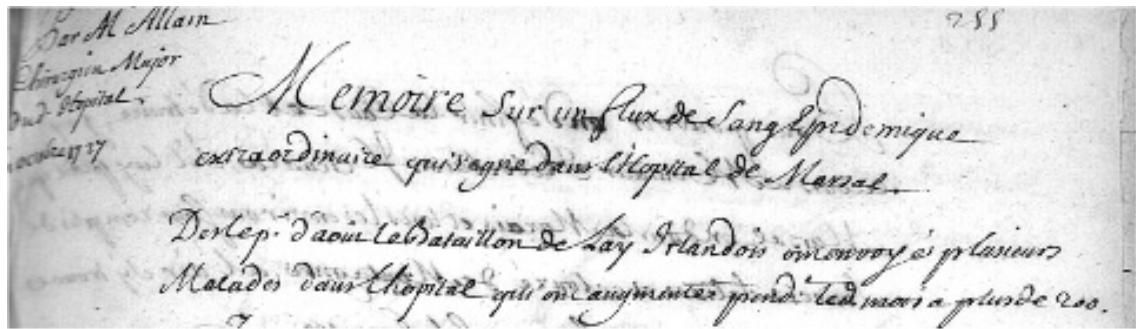 Par M Allain
Chirurgien Major
dud. Hopital.
1727
255
Memoire sur un flux de sang Epidemique
extraordinaire qui regne dans l'hopital de Marsal.
Des le p.r d'aout le Bataillon de Lay Irlandois ont envoyés plusieurs
Malades dans l'hopital qui ont augmentés pend.t led. mois a plus de 200.